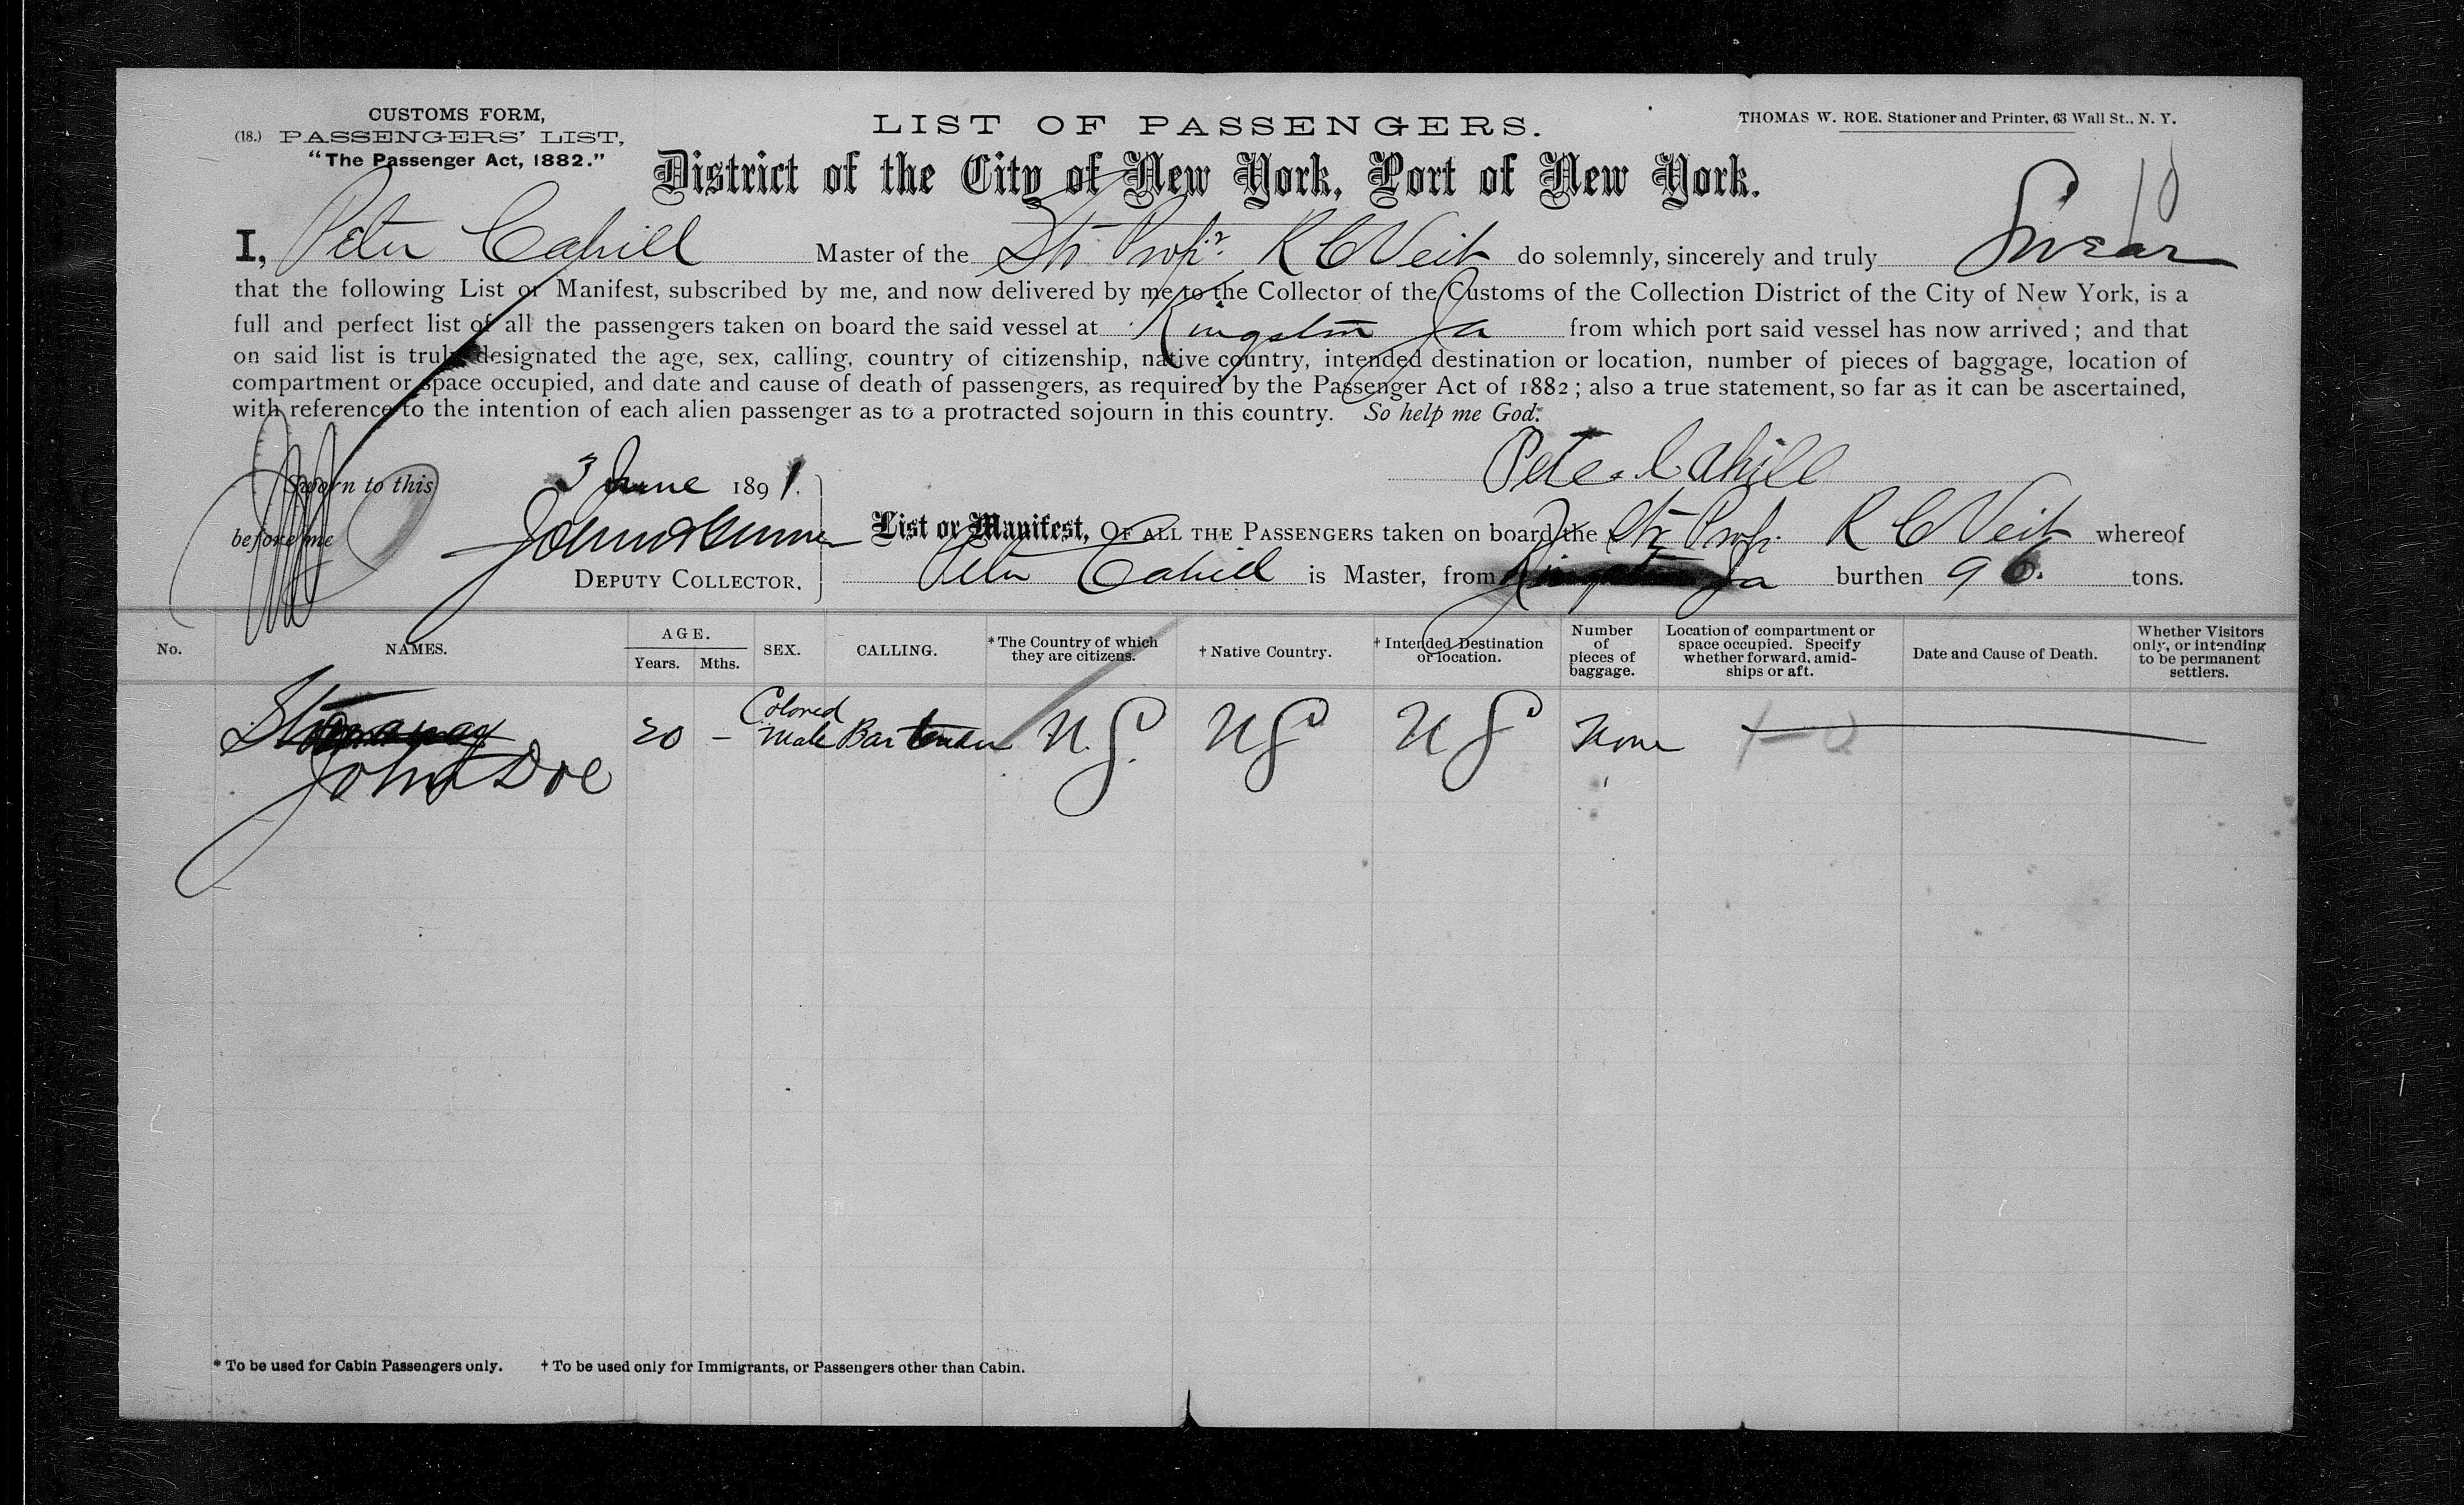 CUSTOMS FORM,
(18.) PASSENGERS' LIST,
"The Passenger Act, 1882."
LIST OF PASSENGERS.
THOMAS W. ROE. Stationer and Printer, 63 Wall St., N. Y.
District of the City of New York, Port of New York.
I, Peter Cahill Master of the Str Prop. R C Veit do solemnly, sincerely and truly Swear
that the following List or Manifest, subscribed by me, and now delivered by me to the Collector of the Customs of the Collection District of the City of New York, is a
full and perfect list of all the passengers taken on board the said vessel at Kingston Ja from which port said vessel has now arrived; and that
on said list is truly designated the age, sex, calling, country of citizenship, native country, intended destination or location, number of pieces of baggage, location of
compartment or space occupied, and date and cause of death of passengers, as required by the Passenger Act of 1882; also a true statement, so far as it can be ascertained,
with reference to the intention of each alien passenger as to a protracted sojourn in this country. So help me God.
Peter Cahill
Sworn to this 3 June 1891.
before me
DEPUTY COLLECTOR.
List or Manifest, OF ALL THE PASSENGERS taken on board the Str Prop. R C Veit whereof
Peter Cahill is Master, from Kingston Ja burthen 96. tons.
No. NAMES. AGE. Years. Mths. SEX. CALLING. * The Country of which they are citizens. † Native Country. † Intended Destination or location. Number of pieces of baggage. Location of compartment or space occupied. Specify whether forward, amidships or aft. Date and Cause of Death. Whether Visitors only, or intending to be permanent settlers.
Stowaway 20 – Colored Male Bartender U.S. U S U S None
John Doe
* To be used for Cabin Passengers only. † To be used only for Immigrants, or Passengers other than Cabin.